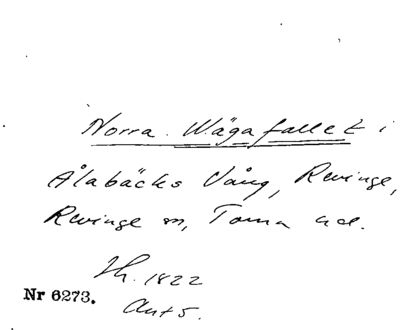 Norra Wägafallet i
Ålabäcks Vång, Revinge,
Revinge sn, Torna hd.
1822
Nr 6273.
Akt 5.